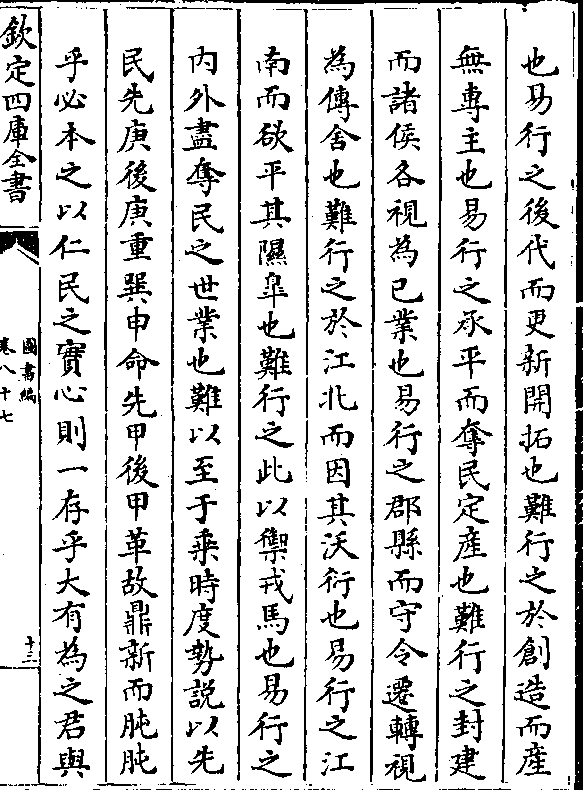 也易行之後代而更新開拓也難行之於創造而產
無專主也易行之承平而奪民定產也難行之封建
而諸侯各視為已業也易行之郡縣而守令遷轉視
為傳舍也難行之於江北而因其沃衍也易行之江
南而欲平其隰皐也難行之此以禦戎馬也易行之
内外盡奪民之世業也難以至于乘時度勢説以先
民先庚後庚重巽申命先甲後甲革故鼎新而肫肫
乎必本之以仁民之實心則一存乎大有為之君與
欽定四庫全書
圖書編
卷八十七
十三